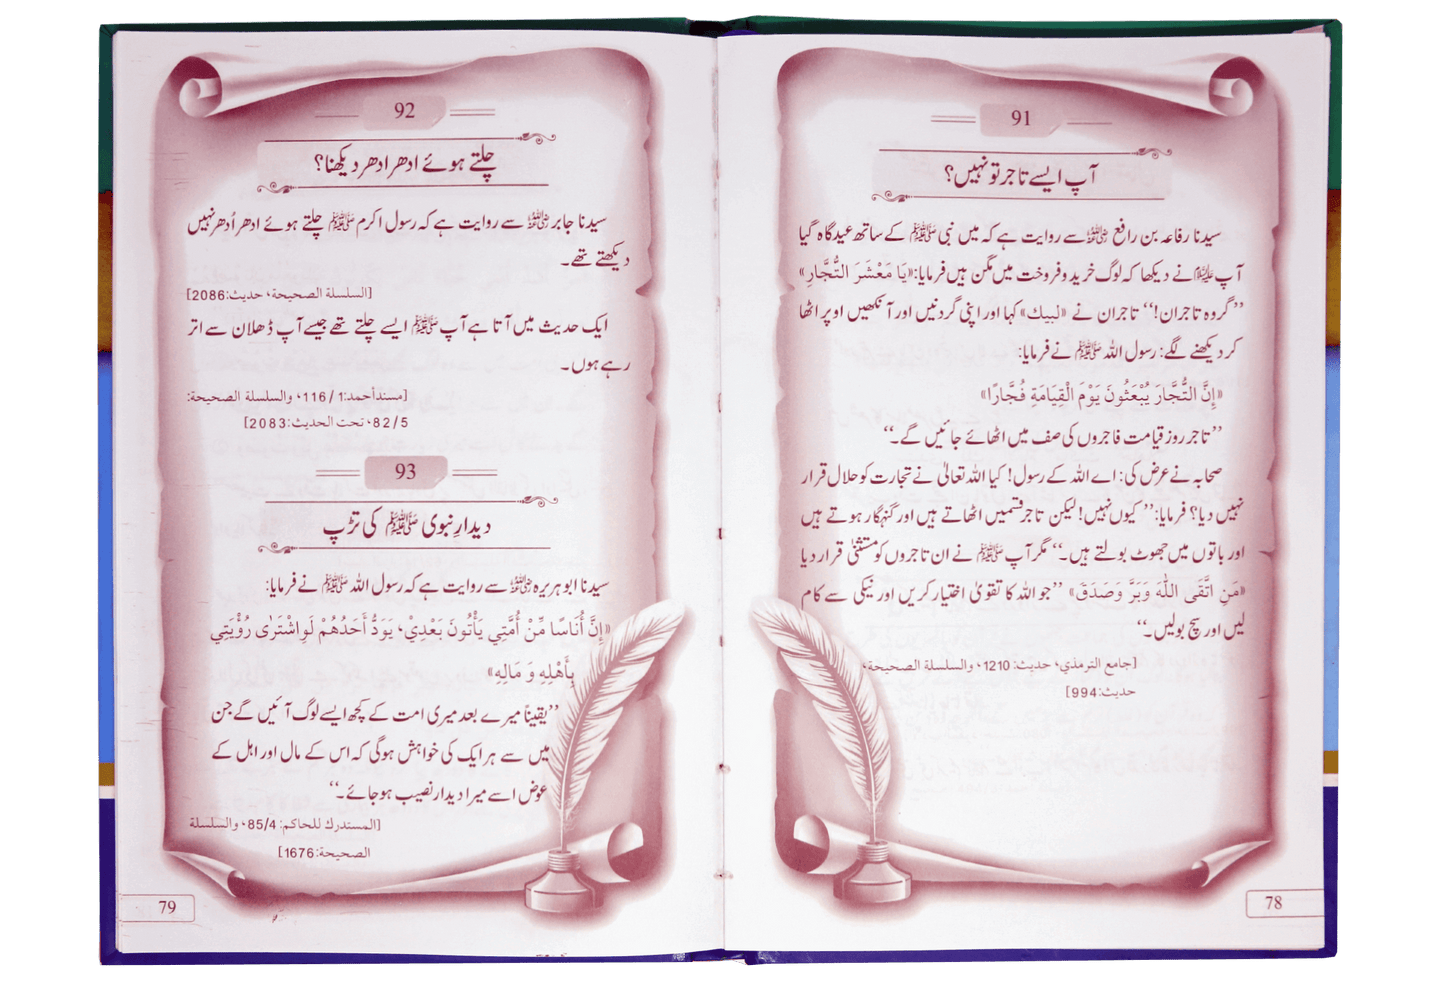 91
آپ ایسے تاجر تو نہیں؟
سیدنا رفاعہ بن رافع رضی اللہ عنہ سے روایت ہے کہ میں نبی ﷺ کے ساتھ عیدگاہ گیا
آپ ﷺ نے دیکھا کہ لوگ خرید و فروخت میں مگن ہیں فرمایا: «يَا مَعْشَرَ التُّجَّارِ»
’’گروہ تاجران!‘‘ تاجران نے «لبيك» کہا اور اپنی گردنیں اور آنکھیں اوپر اٹھا
کر دیکھنے لگے: رسول اللہ ﷺ نے فرمایا:
«إِنَّ التُّجَّارَ يُبْعَثُونَ يَوْمَ الْقِيَامَةِ فُجَّارًا»
’’تاجر روز قیامت فاجروں کی صف میں اٹھائے جائیں گے۔‘‘
صحابہ نے عرض کی: اے اللہ کے رسول! کیا اللہ تعالیٰ نے تجارت کو حلال قرار
نہیں دیا؟ فرمایا: ’’کیوں نہیں! لیکن تاجر قسمیں اٹھاتے ہیں اور گنہگار ہوتے ہیں
اور باتوں میں جھوٹ بولتے ہیں۔‘‘ مگر آپ ﷺ نے ان تاجروں کو مستثنیٰ قرار دیا
«مَنِ اتَّقَى اللّٰهَ وَبَرَّ وَصَدَقَ» ’’جو اللہ کا تقویٰ اختیار کریں اور نیکی سے کام
لیں اور سچ بولیں۔‘‘
[جامع الترمذي، حديث: 1210، والسلسلة الصحيحة،
حديث: 994]
78
92
چلتے ہوئے ادھر ادھر دیکھنا؟
سیدنا جابر رضی اللہ عنہ سے روایت ہے کہ رسول اکرم ﷺ چلتے ہوئے ادھر اُدھر نہیں
دیکھتے تھے۔
[السلسلة الصحيحة، حديث: 2086]
ایک حدیث میں آتا ہے آپ ﷺ ایسے چلتے تھے جیسے آپ ڈھلان سے اتر
رہے ہوں۔
[مسند أحمد: 1/116، والسلسلة الصحيحة:
82/5، تحت الحديث: 2083]
93
دیدارِ نبوی ﷺ کی تڑپ
سیدنا ابوہریرہ رضی اللہ عنہ سے روایت ہے کہ رسول اللہ ﷺ نے فرمایا:
«إِنَّ أُنَاسًا مِّنْ أُمَّتِي يَأْتُونَ بَعْدِيْ، يَوَدُّ أَحَدُهُمْ لَوِاشْتَرٰى رُؤْيَتِي
بِأَهْلِهِ وَ مَالِهِ»
’’یقیناً میرے بعد میری امت کے کچھ ایسے لوگ آئیں گے جن
میں سے ہر ایک کی خواہش ہوگی کہ اس کے مال اور اہل کے
عوض اسے میرا دیدار نصیب ہو جائے۔‘‘
[المستدرك للحاكم: 85/4، والسلسلة
الصحيحة: 1676]
79